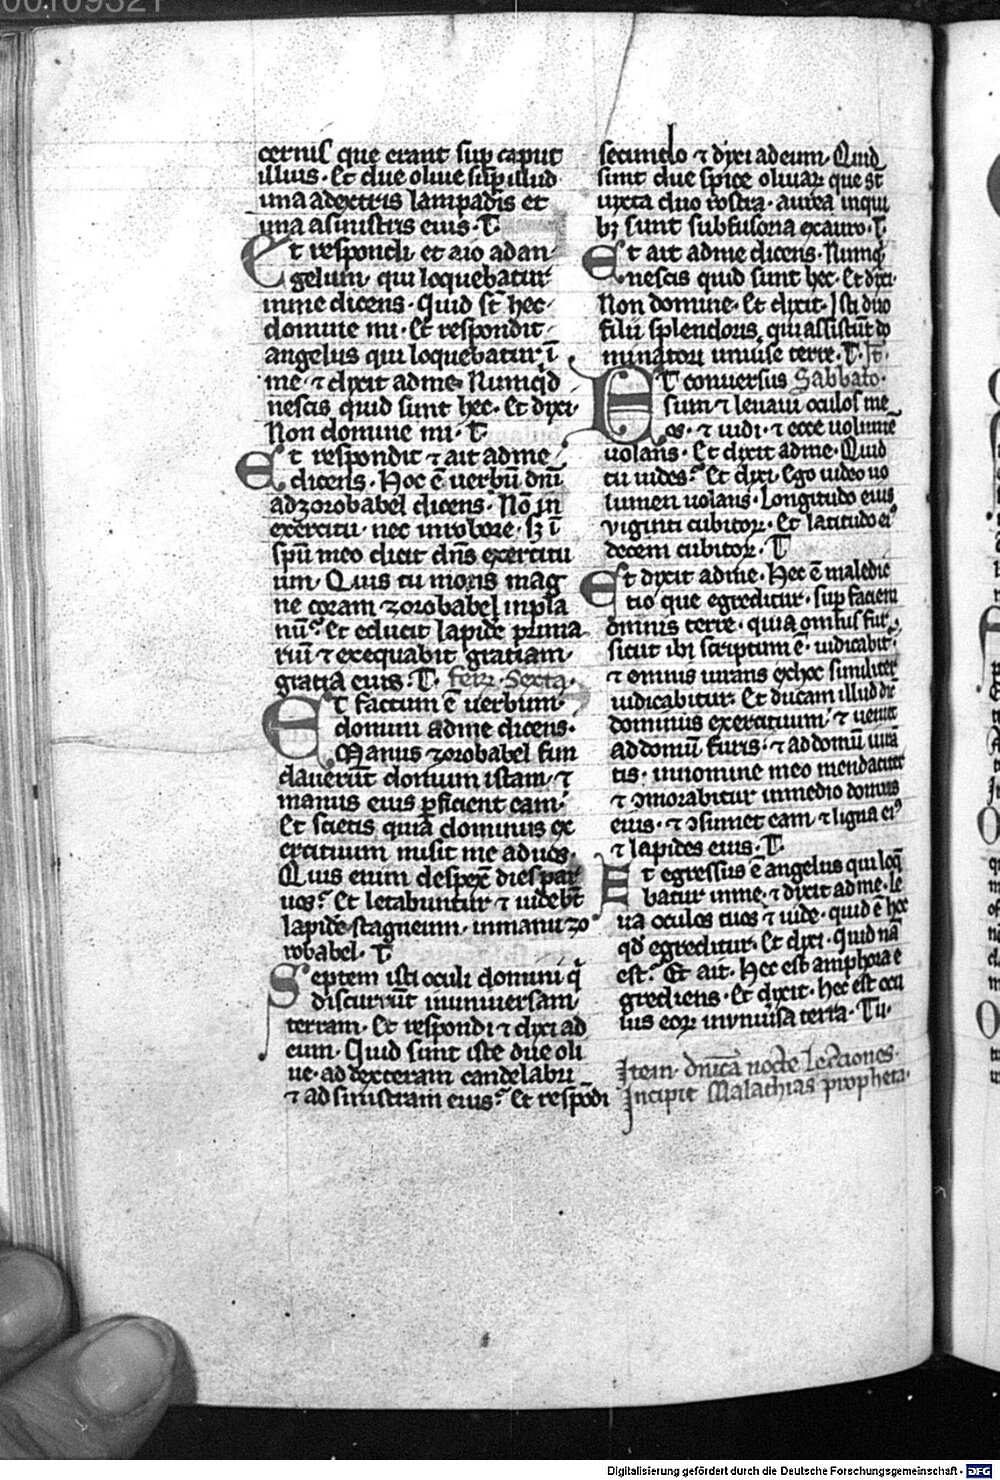 cernis que erant sup caput
illius. Et due oliue sup illud
una adextris lampadis et
una asinistris eius. T.
Et respondi et aio ad an
gelum qui loquebatur
inme dicens. Quid st̄ hec
domine mi. Et respondit
angelus qui loquebatur ī
me ⁊ dixit adme. Numq̄d
nescis quid sunt hec. Et dixi.
Non domine mi. T.
Et respondit ⁊ ait adme
dicens. Hoc ē uerbū dnī
adzorobabel dicens. Nō in
exercitu nec inrobore. sꝫ ī
spū meo dicit dn̄s exercitu
um. Quis tu mons mag
ne coram zorobabel inpla
nū? Et educit lapidē prima
riū ⁊ exequabit gratiam
gratiā eius. T. feir. Sexta.
Et factum ē uerbum
domini adme dicens.
Manus zorobabel fun
dauerūt domum istam ⁊
manus eius ꝑficient eam.
Et scietis quia dominus ex
ercituum misit me ad uos.
Quis enim despexͭ dies par
uos? Et letabuntur ⁊ uidebt̄
lapidē stagneum inmanu zo
robabel. T.
Septem isti oculi domini q̄
discurrūt inuniuersam
terram. Et respondi ⁊ dixi ad
eum. Quid sunt iste due oli
ue ad dexteram candelabri
⁊ ad sinistram eius? Et respōdi
secundo ⁊ dixi ad eum. Quid
sunt due spice oliuaꝝ que st̄
iuxta duo rostra aurea inqui
bꝫ sunt subfusoria exauro. T.
Et ait adme dicens. Numq̄
nescis quid sunt hec. Et dixi.
Non domine. Et dixit. Isti duo
filii splendoris qui assistūt do
minatori uniuśe terre. T. It̄.
Et conuersus Sabbato.
sum ⁊ leuaui oculos me
os. ⁊ uidi. ⁊ ecce uolumē
uolans. Et dixit adme. Quid
tu uides? Et dixi. Ego uideo uo
lumen uolans. Longitudo eius
viginti cubitoꝝ. Et latitudo eiꝰ
decem cubitoꝝ. T
Et dixit adme. Hec ē maledic
tio que egreditur sup faciem
omnis terre. quia omnis fur
sicut ibi scriptum ē. iudicabit̄
⁊ omnis iurans exhoc similiter
iudicabitur. Et educam illud dic̄
dominus exercituum ⁊ ueniet
ad domū furis. ⁊ ad domū iurā
tis. innomine meo mendaciter
⁊ ꝯmorabitur inmedio domus
eius. ⁊ ꝯsumet eam ⁊ ligna eiꝰ
⁊ lapides eius. T.
Et egressus ē angelus qui loq̄
batur inme ⁊ dixit adme. le
ua oculos tuos ⁊ uide. quid ē hoc
qd̄ egreditur. Et dixi. Quid nā
est? Et ait. Hec est amphora e
grediens. Et dixit. hec est ocu
lus eoꝝ inuniuīsa terra. Tu.
Item dn̄ica nocte Lecciones.
Incipit Malachias propheta.
Digitalisierung gefördert durch die Deutsche Forschungsgemeinschaft - DFG